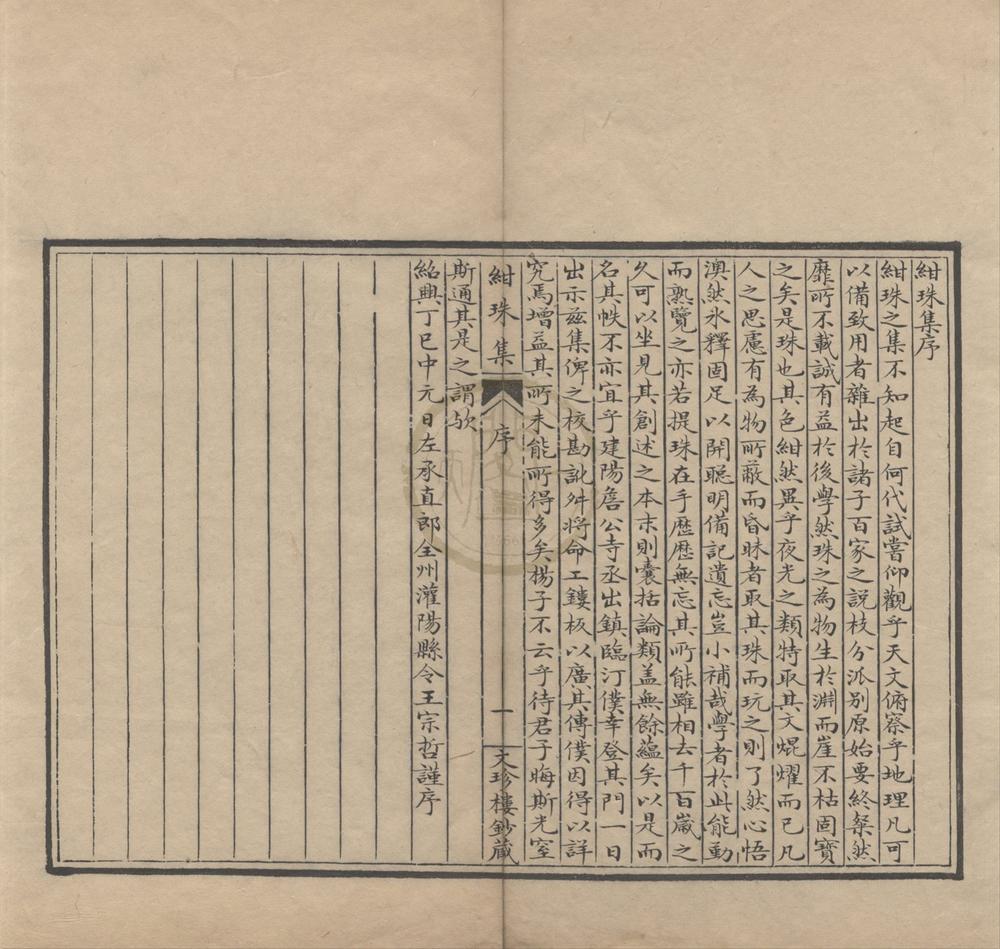 紺珠集序
紺珠之集不知起自何代試嘗仰觀乎天文俯察乎地理凡可
以備致用者雜出於諸子百家之説枝分派别原始要終粲然
靡所不載誠有益於後學然珠之為物生於淵而崖不枯固寶
之矣是珠也其色紺然異乎夜光之類特取其文焜燿而已凡
人之思慮有為物所蔽而昏昧者取其珠而玩之則了然心悟
渙然氷釋固足以開聰明備記遺忘豈小補哉學者於此能動
而熟覽之亦若提珠在手歷歷無忘其所能雖相去千百嵗之
久可以坐見其創述之本末則囊括論類盖無餘蘊矣以是而
名其帙不亦宜乎建陽詹公寺丞出鎮臨汀僕幸登其門一日
出示兹集俾之校勘訛舛將命工鏤板以廣其傳僕因得以詳
究焉增益其所未能所得多矣楊子不云乎待君子晦斯光窒
紺珠集
序
一
文珍樓鈔藏
斯通其是之謂歟
紹興丁巳中元日左承直郎全州灌陽縣令王宗哲謹序